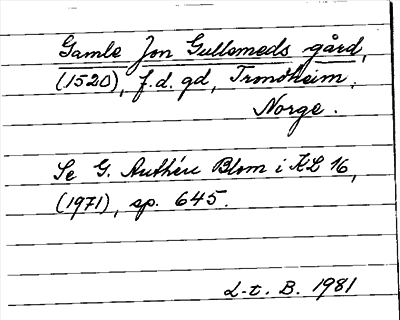 Gamle Jon Gullsmeds gård,
(1520), f.d. gd, Trondheim,
Norge.
Se G. Authén Blom i KL 16,
(1971), sp. 645.
L-t. B. 1981